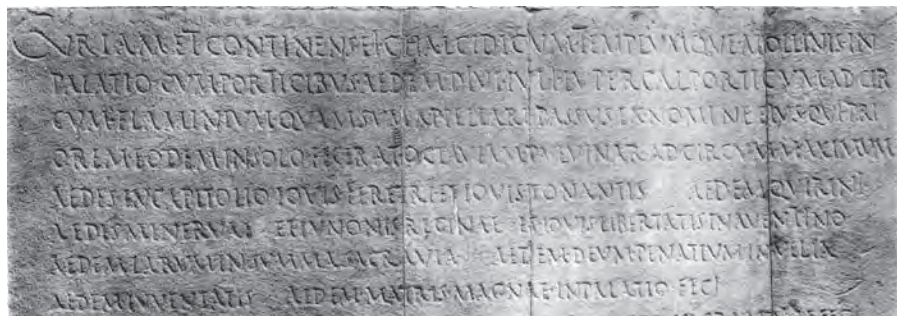 CVRIAM·ET·CONTINENS·EI·CHALCIDICVM·TEMPLVMQVE·APOLLINIS·IN
PALATIO·CVM·PORTICIBVS·AEDEM·DIVI·IVLI·LVPERCAL·PORTICVM·AD·CIR
CVM·FLAMINIVM·QVAM·SVM·APPELLARI·PASSVS·EX·NOMINE·EIVS·QVI·PRI
OREM·EODEM·IN·SOLO·FECERAT·OCTAVIAM·PVLVINAR·AD·CIRCVM·MAXIMVM
AEDES·IN·CAPITOLIO·IOVIS·FERETRI·ET·IOVIS·TONANTIS AEDEM·QVIRINI
AEDIS·MINERVAE·ET·IVNONIS·REGINAE·ET·IOVIS·LIBERTATIS·IN·AVENTINO
AEDEM·LARVM·IN·SVMMA·SACRA·VIA AEDEM·DEVM·PENATIVM·IN·VELIA
AEDEM·IVVENTATIS AEDEM·MATRIS·MAGNAE·IN·PALATIO·FECI